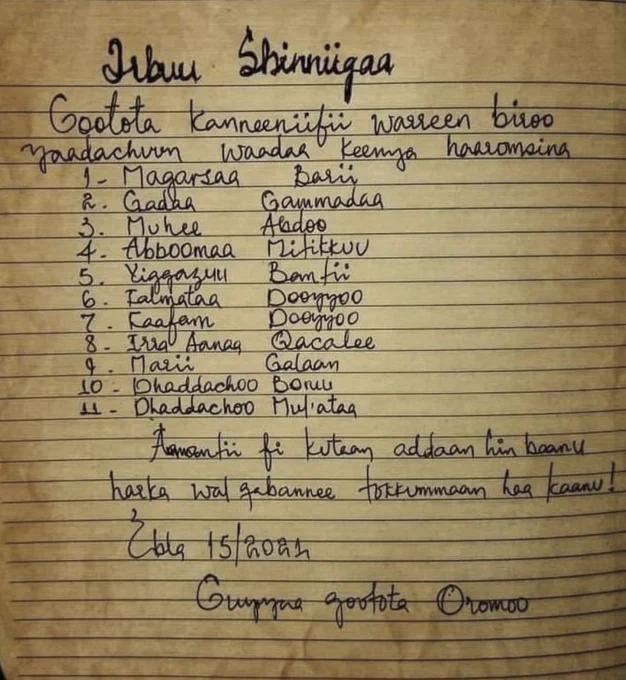 Irbuu Shinniigaa
Gootota kanneeniifii warreen biroo
yaadachuun waadaa keenya haaromsina
1- Magarsaa Barii
2. Gadaa Gammadaa
3. Muhee Abdoo
4. Abboomaa Mitikkuu
5. Yiggazuu Bantii
6. Falmataa Dooyyoo
7. Kaafam Dooyyoo
8 - Irra Aanaa Qacalee
9 - Marii Galaan
10 - Dhaddachoo Boruu
11 - Dhaddachoo Mul'ataa
Amantii fi kutaan addaan hin baanu
harka wal qabannee tokkummaan haa kaanu!
Ebla 15/2021
Guyyaa gootota Oromoo